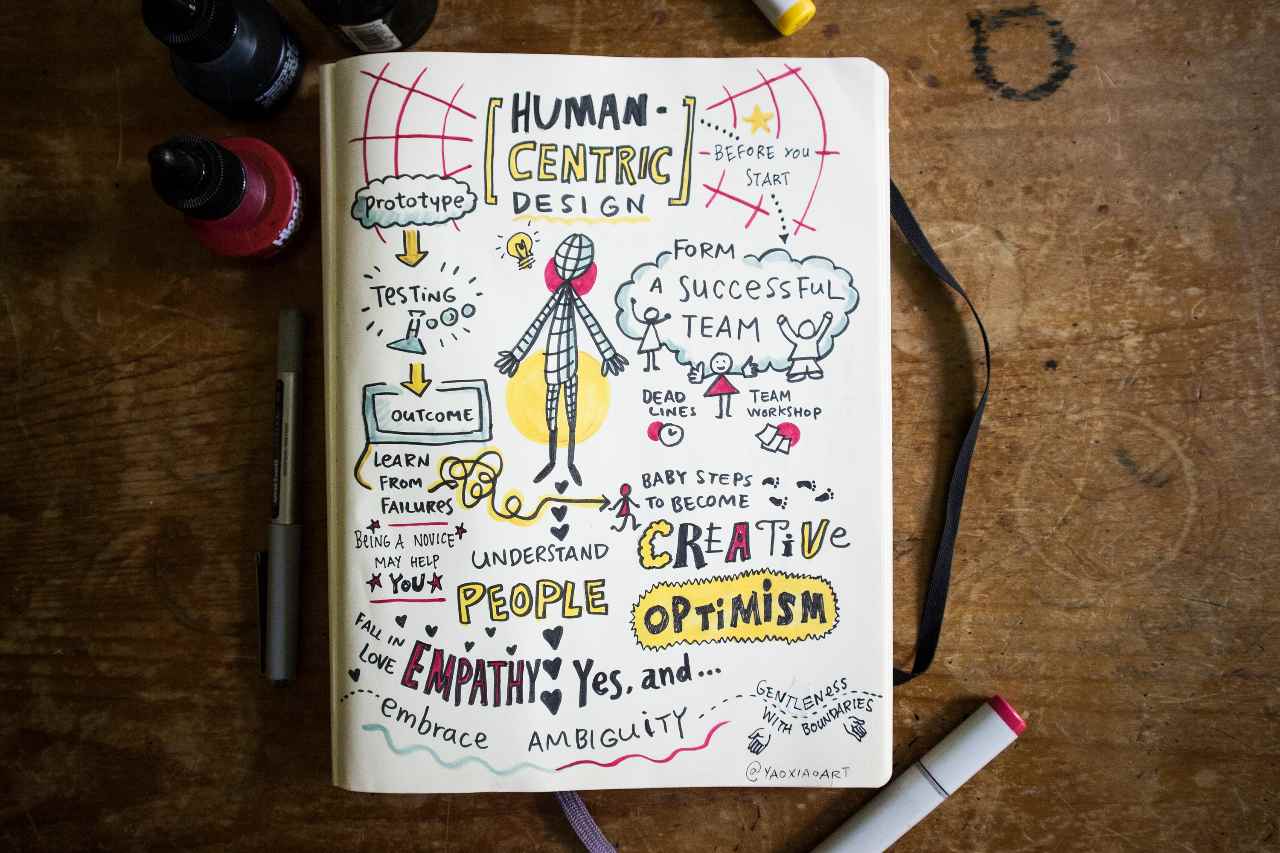 HUMAN-
CENTRIC
DESIGN
BEFORE YOU
START
FORM
A SUCCESSFUL
TEAM
DEAD
LINES
TEAM
WORKSHOP
prototype
TESTING
OUTCOME
LEARN
FROM
FAILURES
BEING A NOVICE
MAY HELP
YOU
BABY STEPS
TO BECOME
CREATIVE
UNDERSTAND
PEOPLE
OPTIMISM
FALL IN
LOVE
EMPATHY
Yes, and...
embrace
AMBIGUITY
GENTLENESS
WITH BOUNDARIES
@YAOXIAOART